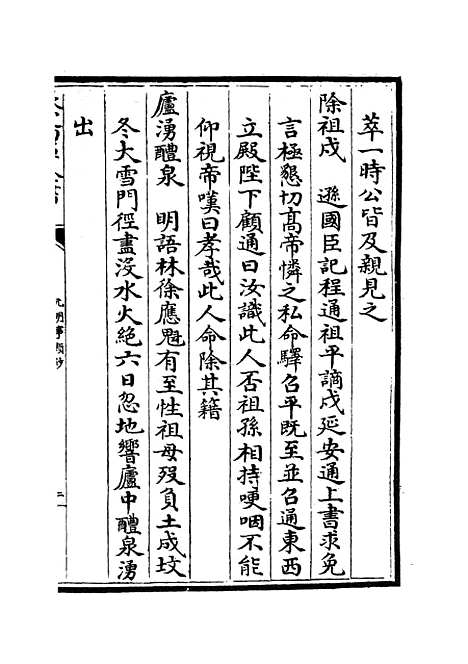 萃一時公皆及親見之
除祖戍　遜國臣記程通祖平謫戍延安通上書求免
言極懇切髙帝憐之私命驛召平既至並召通東西
立殿陛下顧通曰汝識此人否祖孫相持哽咽不能
仰視帝嘆曰孝哉此人命除其籍
廬湧醴泉　明語林徐應魁有至性祖母歿負土成墳
冬大雪門徑盡沒水火絶六日忽地響廬中醴泉湧
出
元明事類鈔